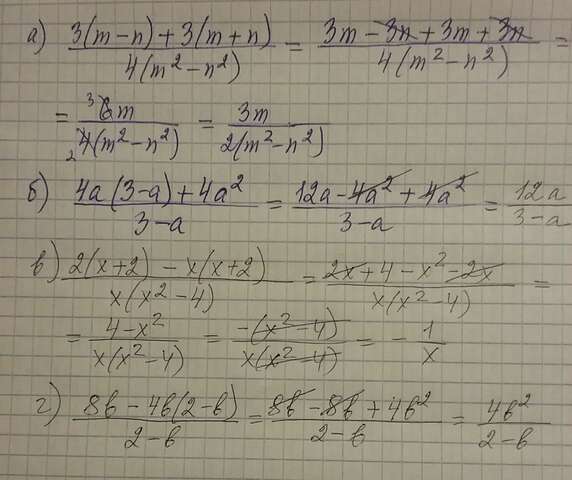 а) (3(m-n)+3(m+n))/(4(m²-n²)) = (3m-3n+3m+3n)/(4(m²-n²)) =
= 6m/(4(m²-n²)) 3 2 = 3m/(2(m²-n²))
б) (4a(3-a)+4a²)/(3-a) = (12a-4a²+4a²)/(3-a) = 12a/(3-a)
в) (2(x+2)-x(x+2))/(x(x²-4)) = (2x+4-x²-2x)/(x(x²-4)) =
= (4-x²)/(x(x²-4)) = (-(x²-4))/(x(x²-4)) = -1/x
г) (8b-4b(2-b))/(2-b) = (8b-8b+4b²)/(2-b) = 4b²/(2-b)